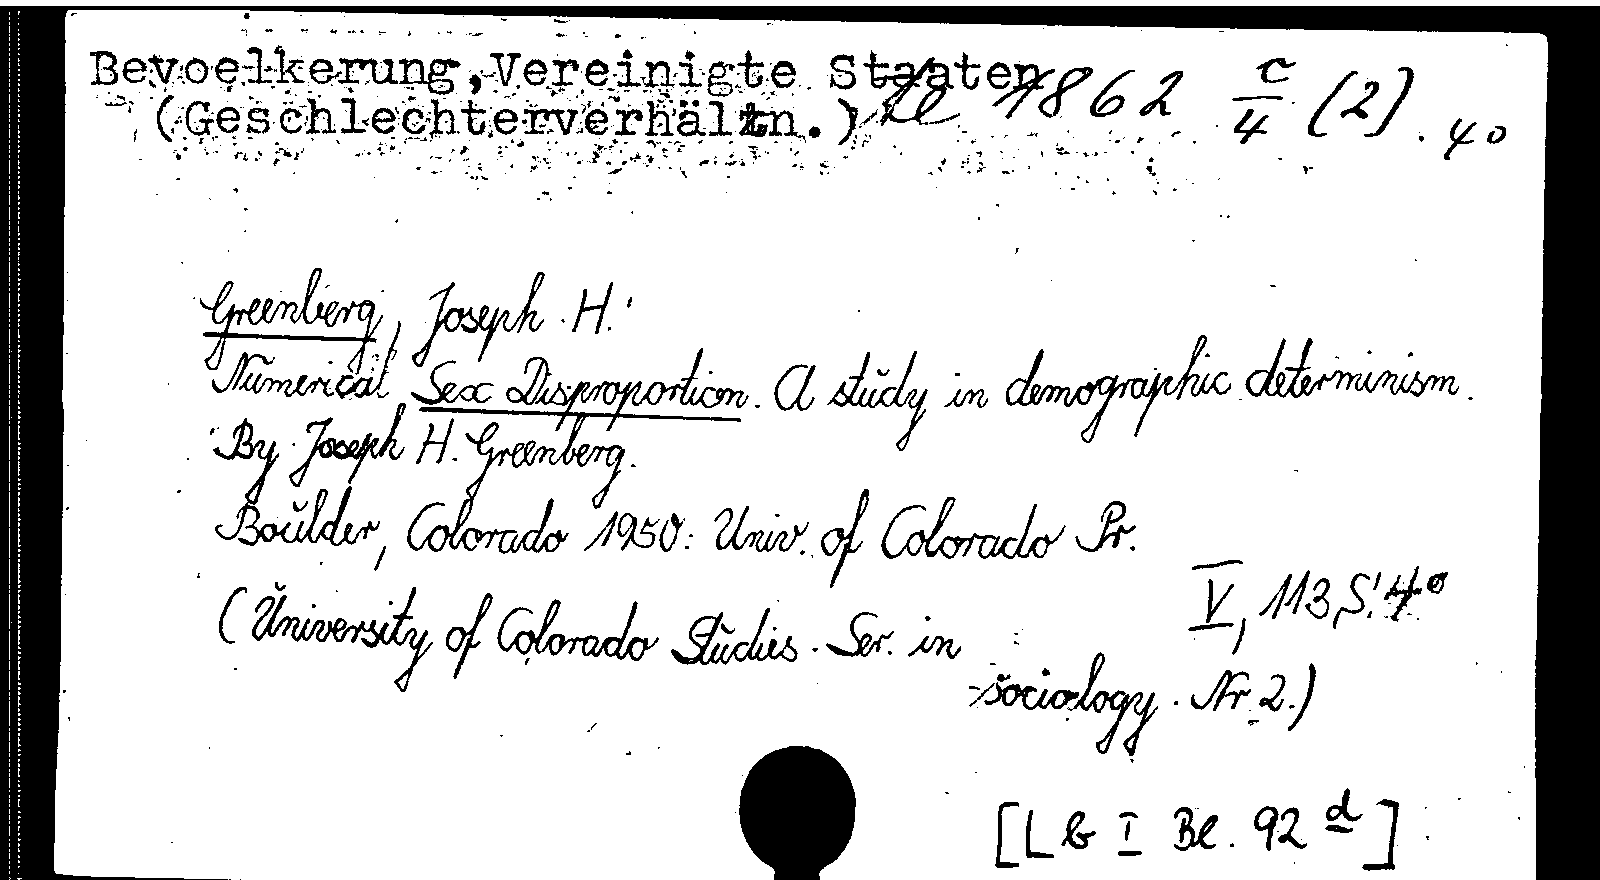 Bevoelkerung, Vereinigte Staaten
(Geschlechterverhältn.) 1862 c/4 (2). 40
Greenberg, Joseph H.
Numerical Sex Disproportion. A study in demographic determinism.
By Joseph H. Greenberg.
Boulder, Colorado 1950: Univ. of Colorado Pr.
V, 113 S. 4°
(University of Colorado Studies. Ser. in
sociology. Nr 2.)
[L b I Bl. 92 d]